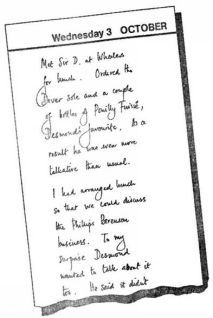 Wednesday 3 OCTOBER
Met Sir D. at Wheelers
for lunch. Ordered the
Dover sole and a couple
of bottles of Pouilly Fuissé,
Desmond's favourite. As a
result he was even more
talkative than usual.
I had arranged lunch
so that we could discuss
the Phillips Berenson
business. To my
surprise Desmond
wanted to talk about it
too. He said it didn't